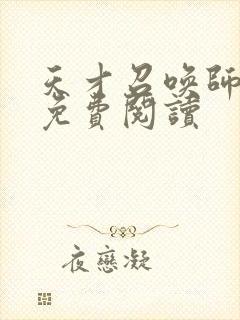 天才召喚師
免費閱讀
夜戀凝